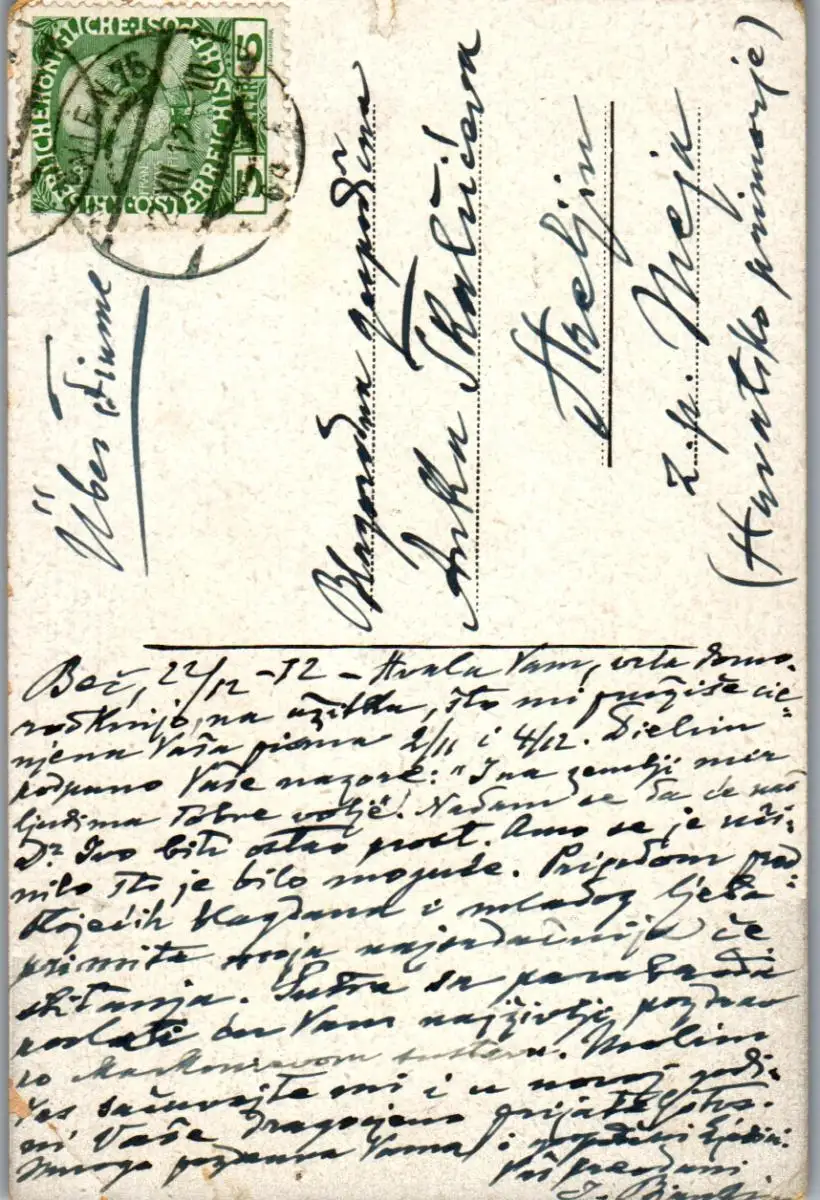 KAISERLICHE KÖNIGLICHE ÖSTERREICHISCHE
5 5
XII 12
Über Fiume
Blagorodna gospodjina
Anka Skalićeva
Hreljin
z.p. Meja
(Hrvatsko primorje)
Beč, 22/12 - 12 - Hvala Vam, vrla domo-
rodkinjo, na užitku, što mi pružiše cie-
njena Vaša pisma 2/11 i 4/12. Dielim
podpuno Vaše nazore: "I na zemlji mir
ljudima dobre volje". Nadam se da će naš
Dr Ivo biti ostao prost. Amo se je uči-
nilo što je bilo moguće. Prigodom pred-
stojećih blagdana i mladog ljeta
primite moja najsrdačnija če-
stitanja. Sutra sa
poslati ću Vam najživlji pozdrav
po sestru. Molim
Vas sačuvajte mi i u novoj godi-
ni Vaše dragocjeno prijateljstvo.
Mnogo pozdrava Vama i
Vaš preodani